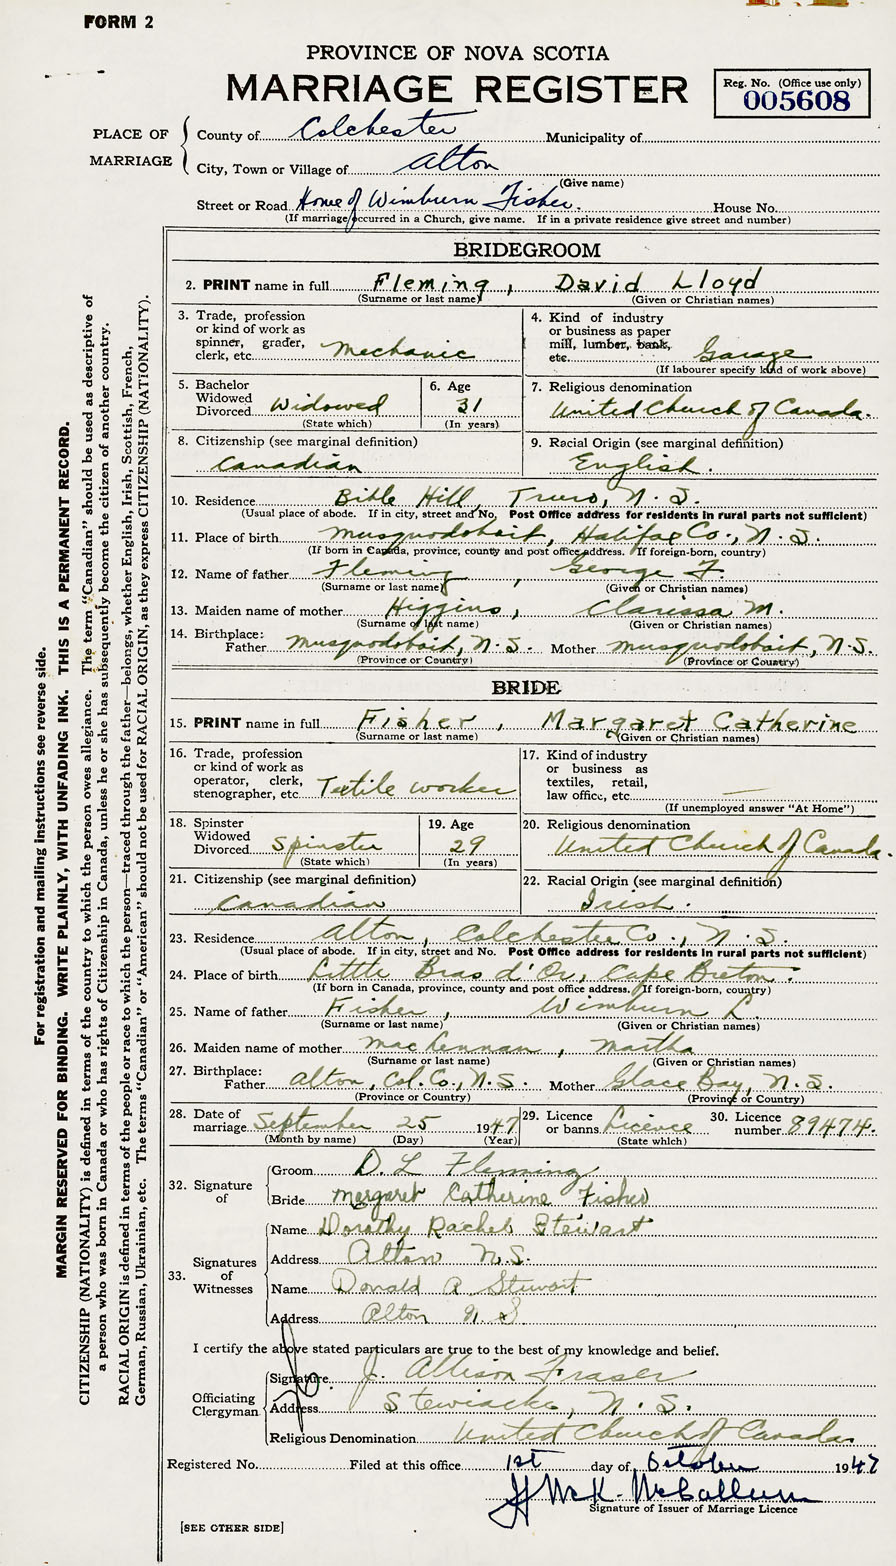 FORM 2
PROVINCE OF NOVA SCOTIA
MARRIAGE REGISTER
Reg. No. (Office use only)
005608
PLACE OF MARRIAGE
County of Colchester Municipality of
City, Town or Village of Alton
(Give name)
Street or Road Home of Wimburn Fisher. House No.
(If marriage occurred in a Church, give name. If in a private residence give street and number)
BRIDEGROOM
2. PRINT name in full Fleming, David Lloyd
(Surname or last name) (Given or Christian names)
3. Trade, profession
or kind of work as
spinner, grader,
clerk, etc. Mechanic
4. Kind of industry
or business as paper
mill, lumber, bank,
etc. Garage
(If labourer specify kind of work above)
5. Bachelor
Widowed
Divorced Widowed
(State which)
6. Age
31
(In years)
7. Religious denomination
United Church of Canada.
8. Citizenship (see marginal definition)
Canadian
9. Racial Origin (see marginal definition)
English.
10. Residence Bible Hill, Truro, N.S.
(Usual place of abode. If in city, street and No. Post Office address for residents in rural parts not sufficient)
11. Place of birth Musquodoboit, Halifax Co., N.S.
(If born in Canada, province, county and post office address. If foreign-born, country)
12. Name of father Fleming, George F.
(Surname or last name) (Given or Christian names)
13. Maiden name of mother Higgins, Clarissa M.
(Surname or last name) (Given or Christian names)
14. Birthplace:
Father Musquodoboit, N.S. Mother Musquodoboit, N.S.
(Province or Country) (Province or Country)
BRIDE
15. PRINT name in full Fisher, Margaret Catherine
(Surname or last name) (Given or Christian names)
16. Trade, profession
or kind of work as
operator, clerk,
stenographer, etc. Textile worker
17. Kind of industry
or business as
textiles, retail,
law office, etc. —
(If unemployed answer "At Home")
18. Spinster
Widowed
Divorced Spinster
(State which)
19. Age
29
(In years)
20. Religious denomination
United Church of Canada.
21. Citizenship (see marginal definition)
Canadian
22. Racial Origin (see marginal definition)
Irish.
23. Residence Alton, Colchester Co., N.S.
(Usual place of abode. If in city, street and No. Post Office address for residents in rural parts not sufficient)
24. Place of birth Little Bras d'Or, Cape Breton.
(If born in Canada, province, county and post office address. If foreign-born, country)
25. Name of father Fisher, Wimburn L.
(Surname or last name) (Given or Christian names)
26. Maiden name of mother MacLennan, Martha
(Surname or last name) (Given or Christian names)
27. Birthplace:
Father Alton, Col. Co., N.S. Mother Glace Bay, N.S.
(Province or Country) (Province or Country)
28. Date of
marriage September 25 1947
(Month by name) (Day) (Year)
29. Licence
or banns Licence
(State which)
30. Licence
number 89474.
32. Signature of
Groom D. L Fleming
Bride Margaret Catherine Fisher
33. Signatures of Witnesses
Name Dorothy Rachel Stewart
Address Alton N.S.
Name Donald A Stewart
Address Alton N S
I certify the above stated particulars are true to the best of my knowledge and belief.
Officiating Clergyman
Signature J. Allison Fraser
Address Stewiacke, N.S.
Religious Denomination United Church of Canada
Registered No. Filed at this office 1st day of October 1947
H McK. McCallum
Signature of Issuer of Marriage Licence
[SEE OTHER SIDE]
For registration and mailing instructions see reverse side.
MARGIN RESERVED FOR BINDING. WRITE PLAINLY, WITH UNFADING INK. THIS IS A PERMANENT RECORD.
CITIZENSHIP (NATIONALITY) is defined in terms of the country to which the person owes allegiance. The term "Canadian" should be used as descriptive of
a person who was born in Canada or who has rights of Citizenship in Canada, unless he or she has subsequently become the citizen of another country.
RACIAL ORIGIN is defined in terms of the people or race to which the person—traced through the father—belongs, whether English, Irish, Scottish, French,
German, Russian, Ukrainian, etc. The terms "Canadian" or "American" should not be used for RACIAL ORIGIN, as they express CITIZENSHIP (NATIONALITY).